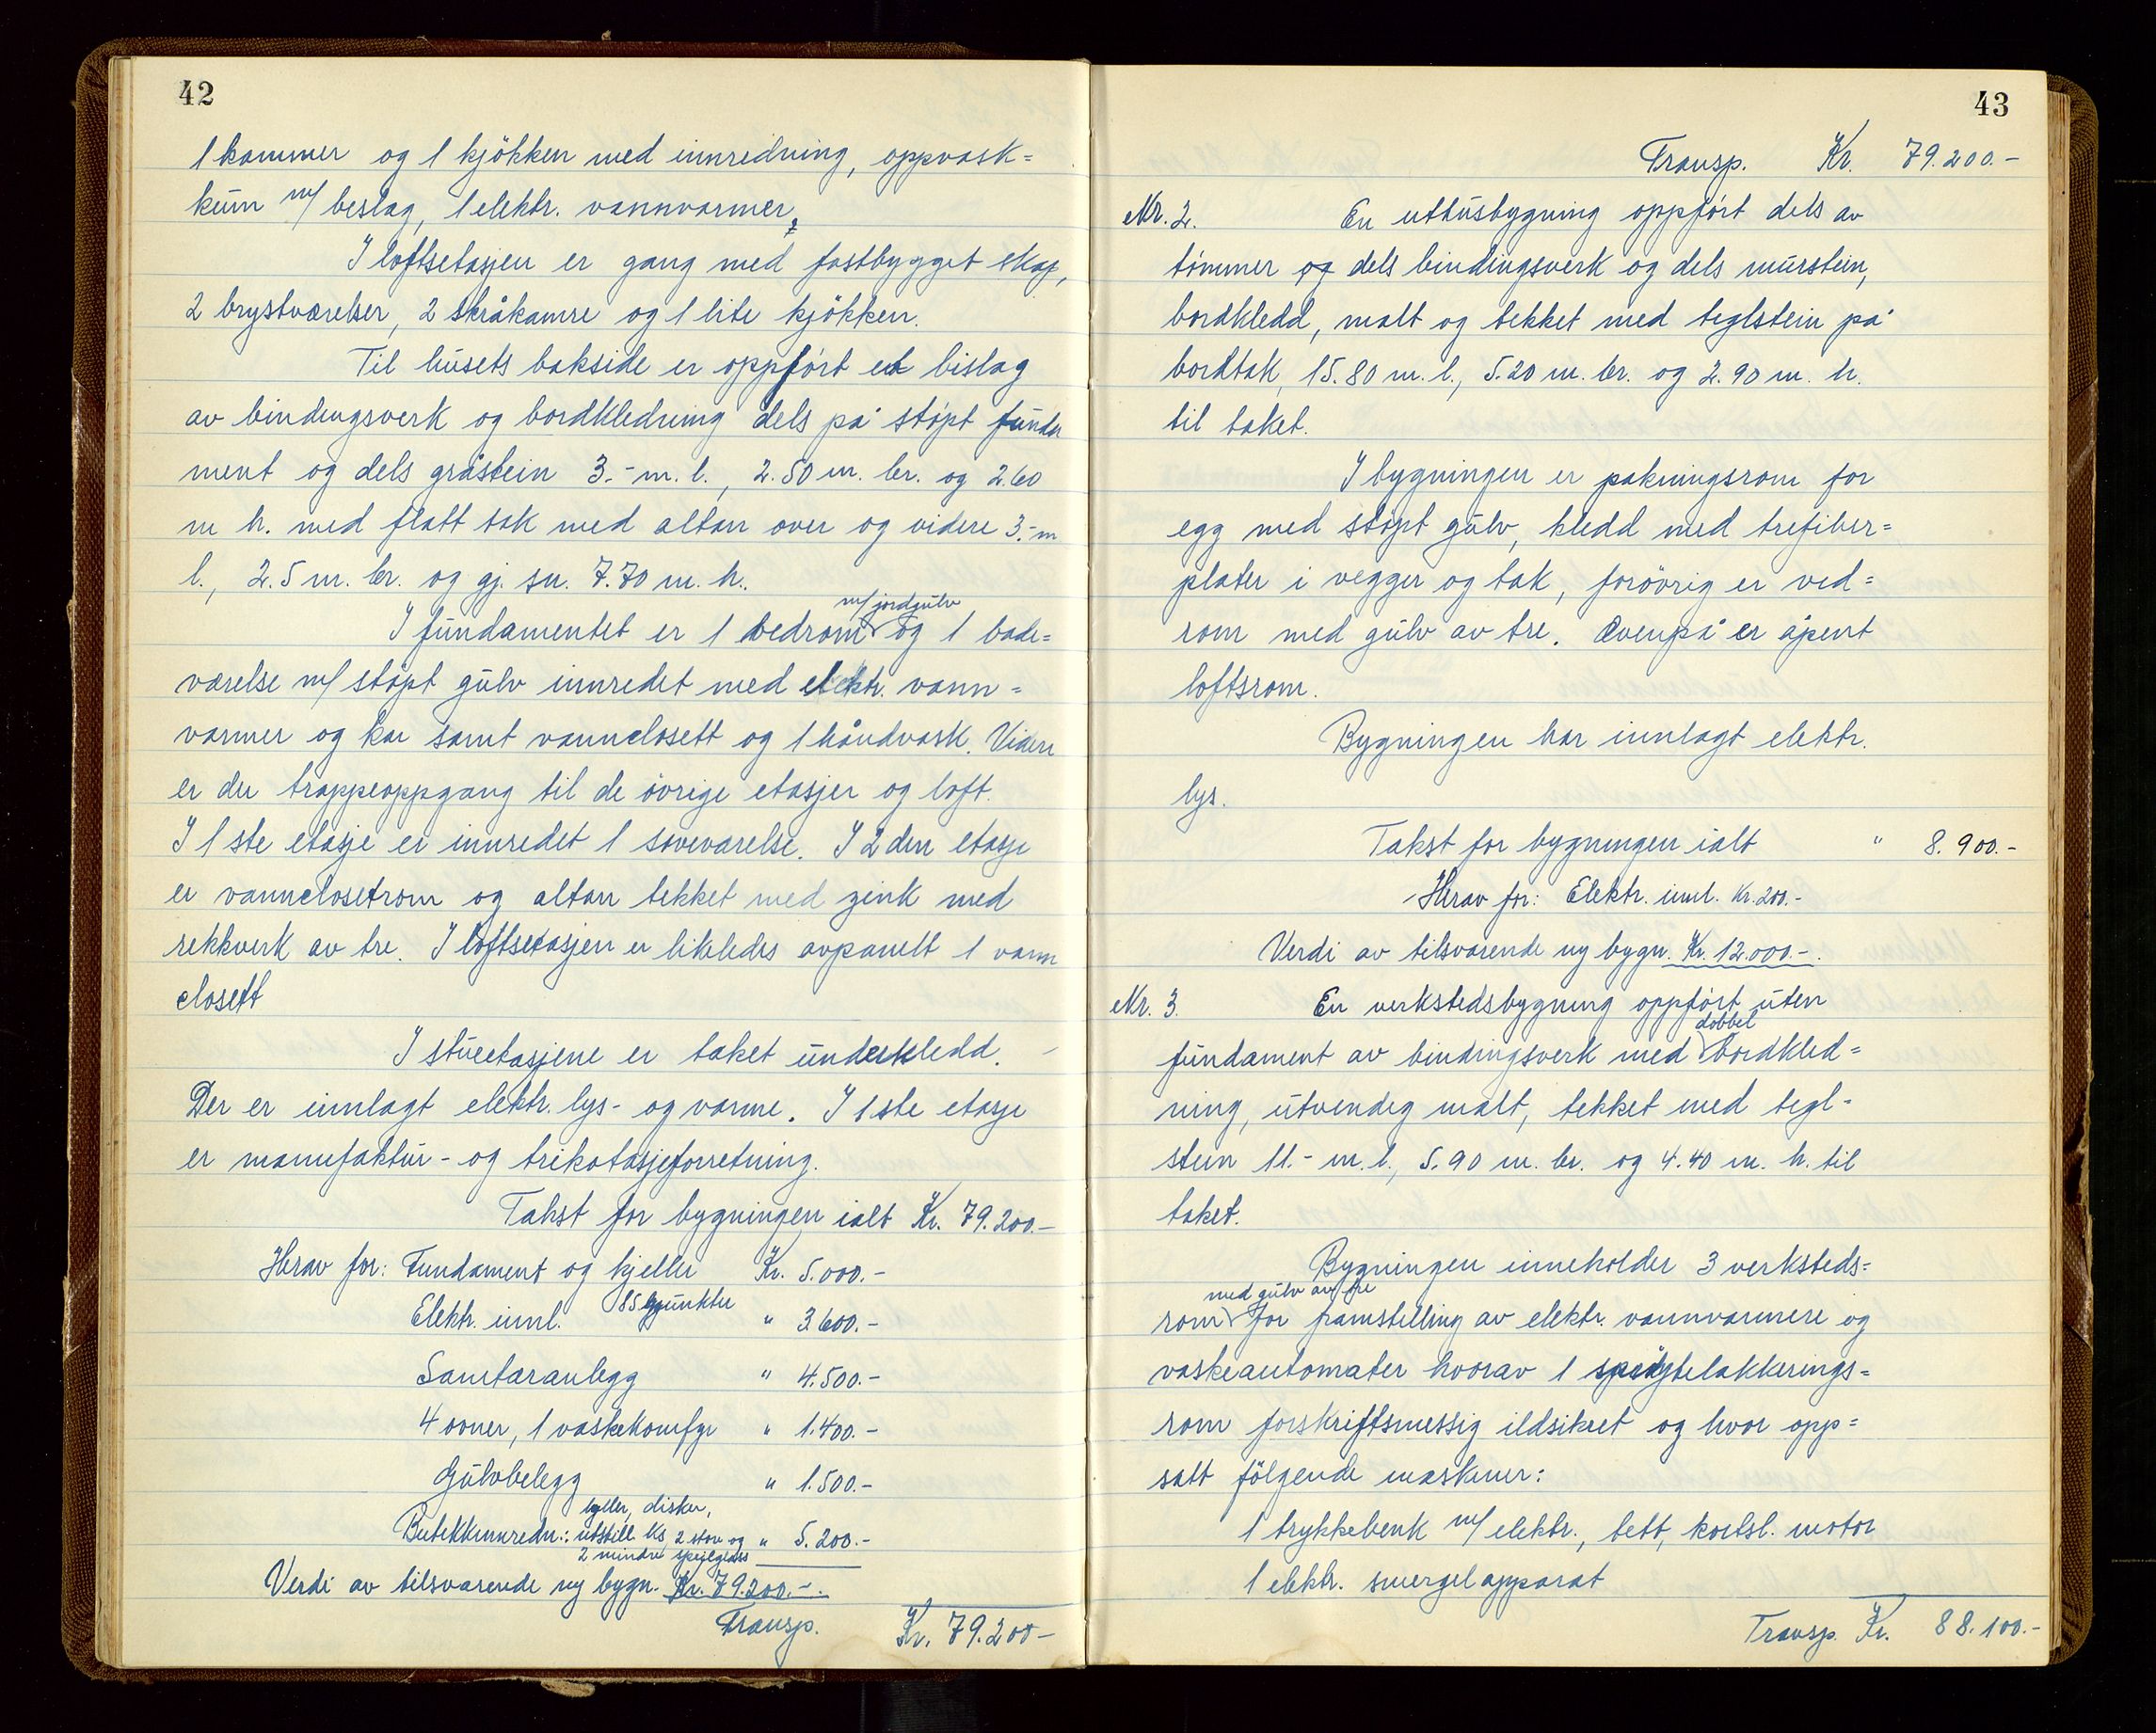 42
1 kammer og 1 kjökken med innredning, oppvask=
kum m/ beslag, 1 elektr. vannvarmer,
I loftsetasjen er gang med fastbygget skap,
2 brystværelser, 2 skråkamre og 1 lite kjökken.
Til husets bakside er oppfört et bislag
av bindingsverk og bordkledning dels på stöpt funda
ment og dels gråstein 3.- m. l., 2.50 m. br. og 2.60
m h. med flatt tak med altan over og videre 3.- m
l., 2.5 m. br. og gj. sn. 7.70 m. h..
m/ jordgulv
I fundamentet er 1 vedrom og 1 bade=
værelse m/ stöpt gulv innredet med elektr. vann=
varmer og kar samt vannclosett og 1 håndvask. Videre
er der trappeoppgang til de övrige etasjer og loft.
I 1 ste etasje er innredet 1 soveværelse. I 2 den etasje
er vannclosetrom og altan tekket med zink med
rekkverk av tre. I loftsetasjen er likeledes avpanelt 1 vann
closett
I stueetasjene er taket underkledd.
Der er innlagt elektr. lys- og varme. I 1 ste etasje
er manufaktur- og trikotasjeforretning.
Takst for bygningen ialt Kr. 79.200.-
Herav for: Fundament og kjeller Kr. 5.000.-
Elektr. innl. 85 punkter " 3.600.-
Sanitæranlegg " 4.500.-
4 ovner, 1 vaskekomfyr " 1.400.-
Gulvbelegg " 1.500.-
hyller, disker,
Butikkinnredn.: utstill. ks, 2 store og " 5.200.-
2 mindre speilglass
Verdi av tilsvarende ny bygn. Kr. 79.200.-.
Transp. Kr. 79.200-
43
Transp. Kr. 79.200.-
Nr. 2. En uthusbygning oppfört dels av
tömmer og dels bindingsverk og dels murstein,
bordkledd, malt og tekket med teglstein på
bordtak, 15.80 m. l., 5.20 m. br. og 2.90 m. h.
til taket.
I bygningen er pakningsrom for
egg med stöpt gulv, kledd med trefiber=
plater i vegger og tak, forövrig er ved=
rom med gulv av tre. Ovenpå er åpent
loftsrom.
Bygningen har innlagt elektr.
lys.
Takst for bygningen ialt " 8.900.-
Herav for: Elektr. innl. Kr. 200.-
Verdi av tilsvarende ny bygn. Kr. 12.000.-.
Nr. 3. En verkstedsbygning oppfört uten
dobbel
fundament av bindingsverk med bordkled=
ning, utvendig malt, tekket med tegl=
stein 11.- m. l., 5.90 m. br. og 4.40 m. h. til
taket.
Bygningen inneholder 3 verksteds=
med gulv av tre
rom for framstilling av elektr. vannvarmere og
vaskeautomater hvorav 1 spöytelakkerings=
rom forskriftsmessig ildsikret og hvor opp=
satt fölgende maskiner:
1 trykkebenk m/ elektr., tett, kortsl. motor
1 elektr. smergelapparat
Transp. Kr. 88.100.-